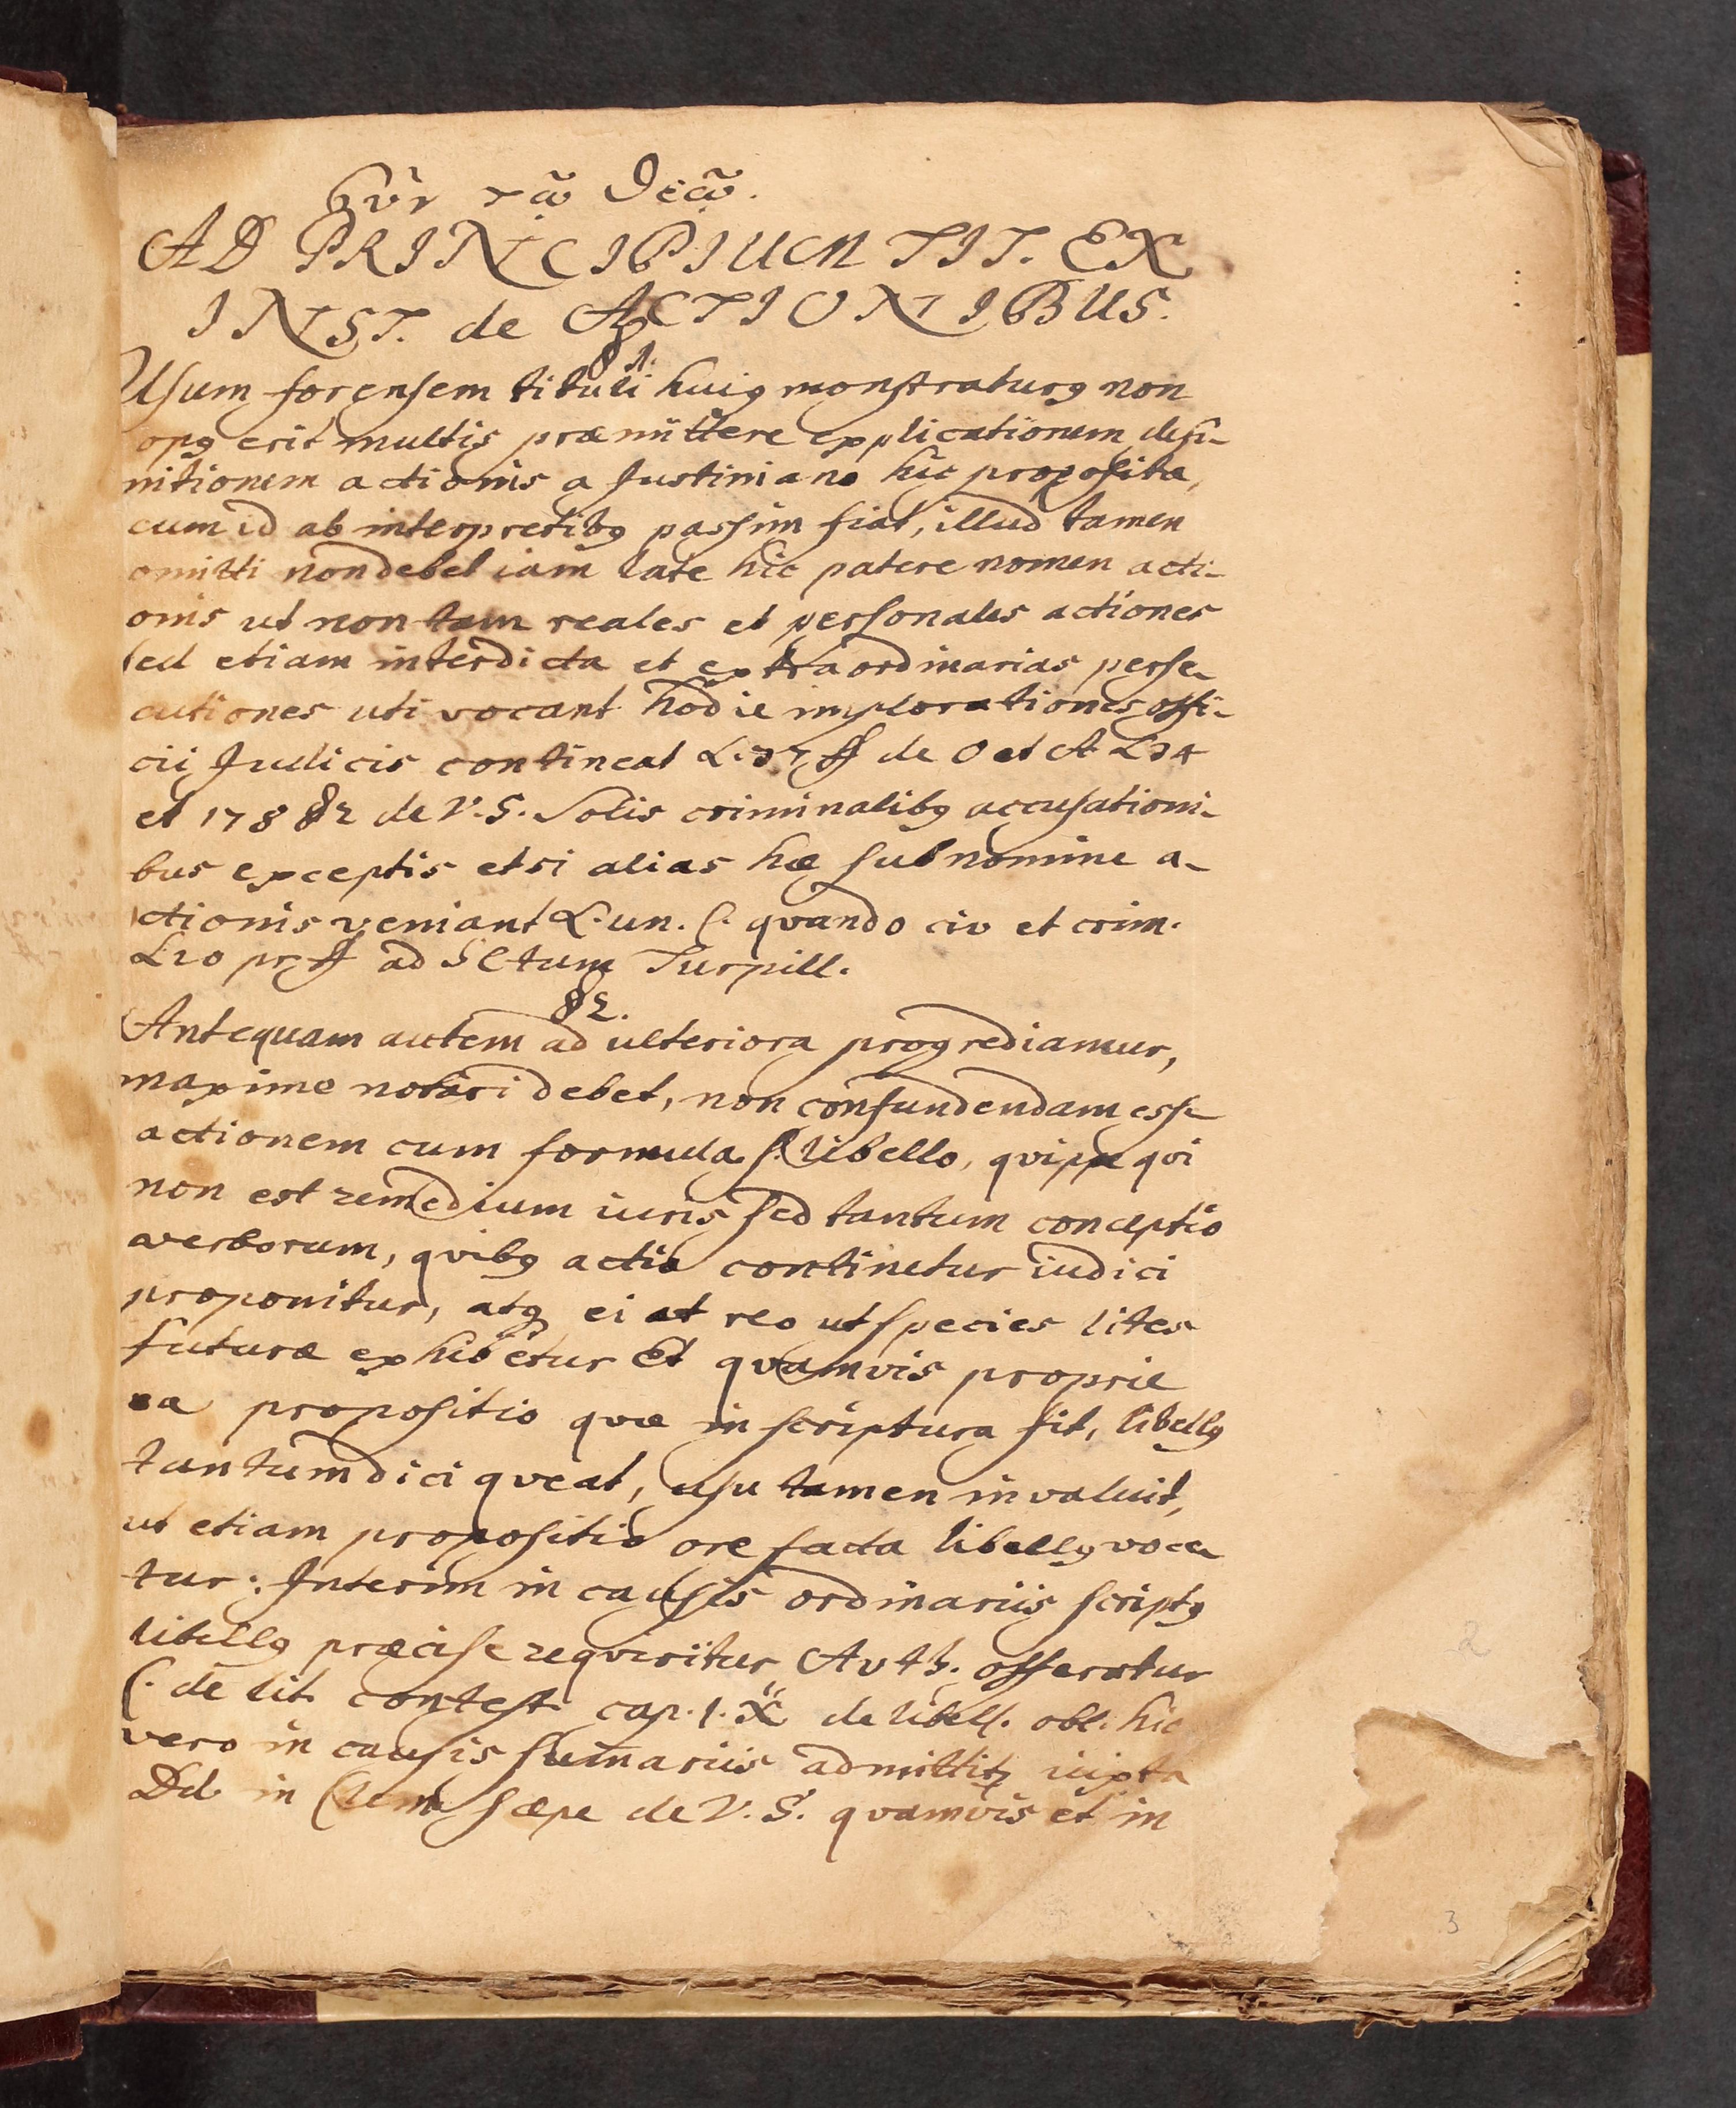 Σὺν τῷ Θεῷ.
AD PRINCIPIUM TIT. EX
INST. de ACTIONIBUS.
§ 1.
Usum forensem tituli huiꝰ monstraturꝰ non
opꝰ erit multis præmittere explicationem defi-
nitionem actionis a Justiniano hic proposita,
cum id ab interpretibꝰ passim fiat, illud tamen
omitti non debet iam late hic patere nomen acti-
onis ut non tam reales et personales actiones
sed etiam interdicta et extraordinarias perse-
cutiones uti vocant hodie implorationes offi-
cii Judicis contineat L. 37 ff de O et A L 34
et 178 § 2 de V. S. Solis criminalibꝰ accusationi-
bus exceptis etsi alias hæ sub nomine a-
ctionis veniant L. un. C. quando civ et crim.
L 20 pr ff ad SCtum Turpill.
§ 2.
Antequam autem ad ulteriora progrediamur,
maxime notari debet, non confundendam esse
actionem cum formula s. libello, qvippe qvi
non est remedium iuris sed tantum conceptio
verborum, qvibꝰ actio continetur iudici
proponitur, atqꝫ ei et reo ut species lites
futuræ exhibetur Et qvamvis proprie
ea propositio qvæ in scriptura fit, libellꝰ
tantum dici qveat, usu tamen invaluit,
ut etiam propositio ore facta libellꝰ voca
tur: Interim in causis ordinariis scriptꝰ
libellꝰ præcise reqviritur Auth. offeratur
C. de lit. contest. cap. 1. X de libell. obl. hic
vero in causis sum̄ariis admittitꝛ iuxta
Dd. in Clem sæpe de V. S. qvamvis et in
2
3